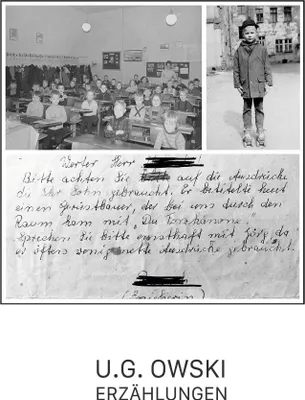 Werter Herr
Bitte achten Sie auf die Ausdrücke
die Ihr Sohn gebraucht. Er betitelte heut
einen Gerüstbauer, der bei uns durch den
Raum kam mit „Du Kotzkanone."
Sprechen Sie bitte ernsthaft mit Jörg, da
er öfters wenig nette Ausdrücke gebraucht.
(Erzieherin)
U.G. OWSKI
ERZÄHLUNGEN